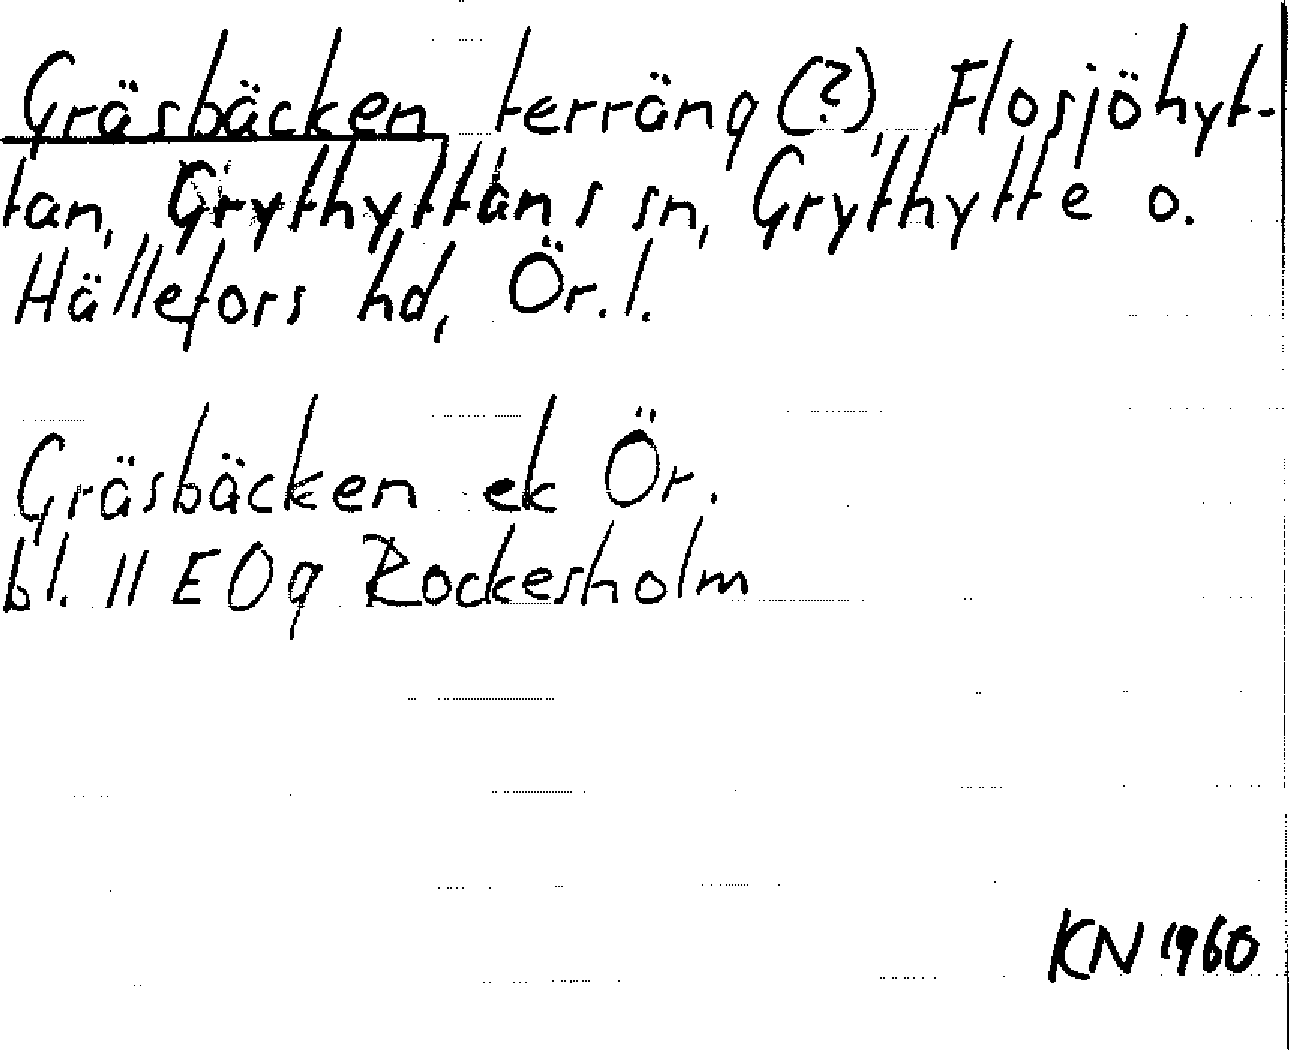 Gräsbäcken terräng (?), Flosjöhyt-
tan, Grythyttans sn, Grythytte o.
Hällefors hd, Ör. l.
Gräsbäcken ek Ör.
bl. 11 EOg Rockesholm
KN 1960